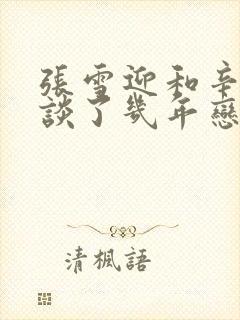 張雪迎和辛
談了幾年戀
清楓語